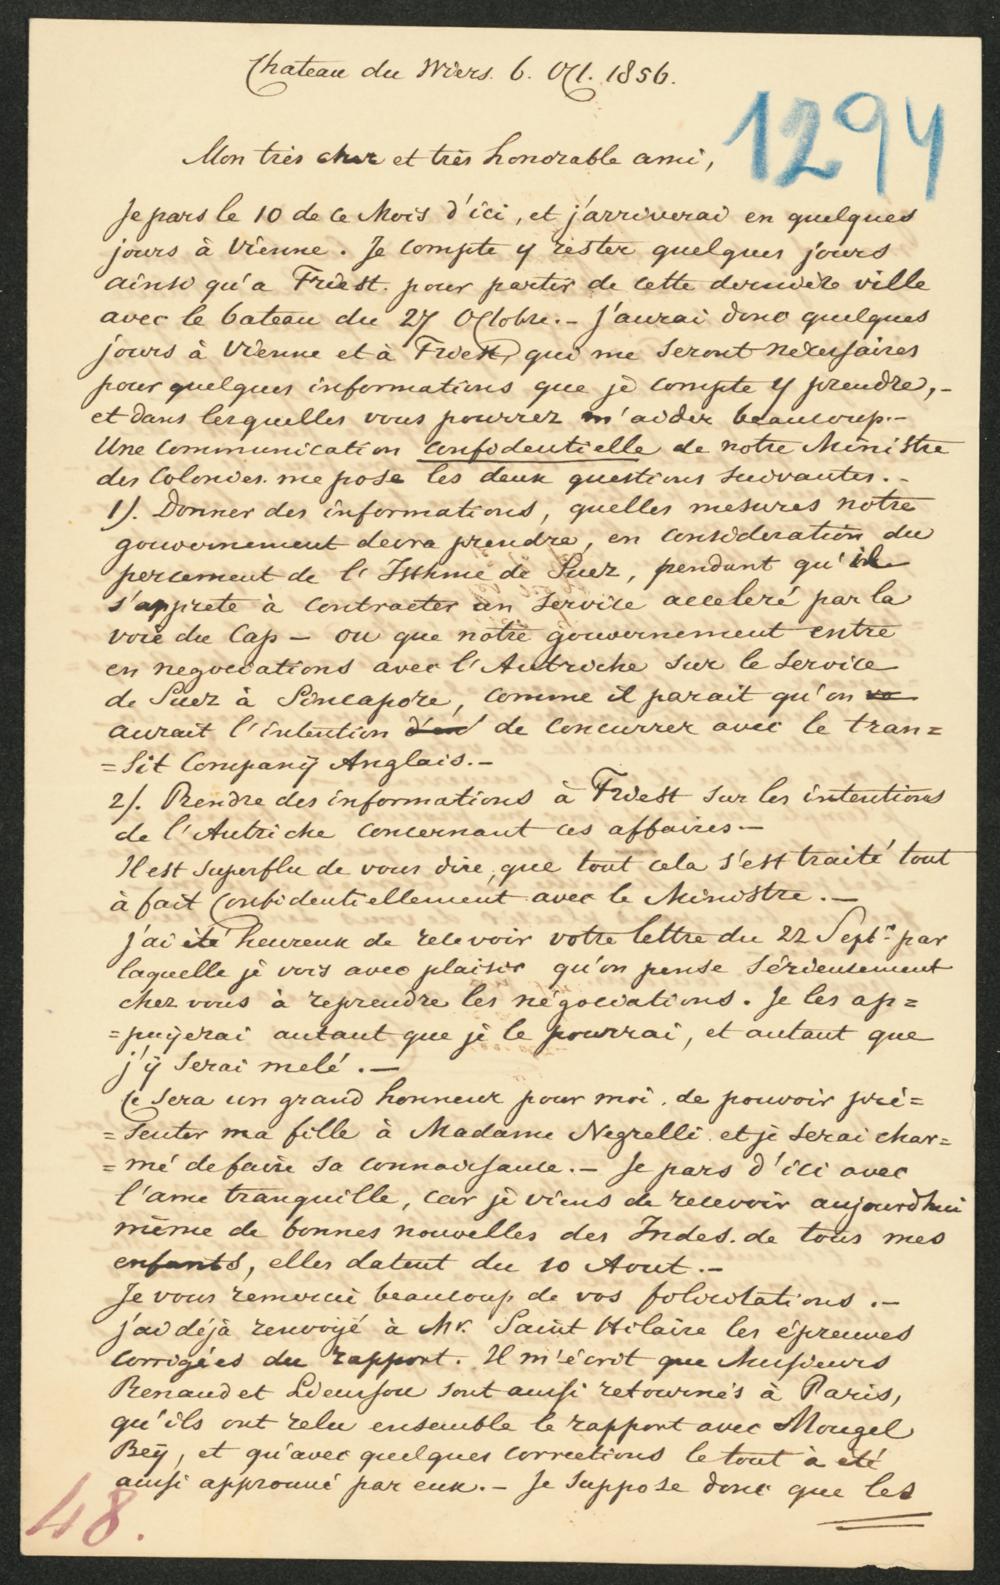 Chateau du Wiers. 6. Oct. 1856.
1294
Mon très cher et très honorable ami,
Je pars le 10 de ce Mois d'ici, et j'arriverai en quelques
jours à Vienne. Je compte y rester quelques jours
ainsi qu'a Triest. pour partir de cette dernière ville
avec le bateau du 27 Octobre.- J'aurai donc quelques
jours à Vienne et à Triest, qui me seront necessaires
pour quelques informations que je compte y prendre,-
et dans lesquelles vous pourrez m'aider beaucoup.-
Une communication confidentielle de notre Ministre
des Colonies. me pose les deux questions suivantes.-
1). Donner des informations, quelles mesures notre
gouvernement devra prendre, en consideration du
percement de l'Isthme de Suez, pendant qu'il
s'apprete à contracter un service acceleré par la
voie du Cap - ou que notre gouvernement entre
en negociations avec l'Autriche sur le service
de Suez à Sincapore, comme il parait qu'on va
aurait l'intention d'en de concurrer avec le tran=
=sit Companÿ Anglais.-
2). Prendre des informations à Triest sur les intentions
de l'Autriche concernant ces affaires-
Il est superflu de vous dire, que tout cela s'est traité tout
à fait Confidentiellement avec le Ministre.-
J'ai été heureux de recevoir votre lettre du 22 Septr par
laquelle je vois avec plaisir qu'on pense sérieusement
chez vous à reprendre les négociations. Je les ap=
=puÿerai autant que je le pourrai, et autant que
j'ÿ serai melé.-
Ce sera un grand honneur pour moi. de pouvoir pré=
=senter ma fille à Madame Negrelli. et je serai char=
=mé de faire sa connaissance.- Je pars d'ici avec
l'ame tranquille, car je viens de recevoir aujourdhui
même de bonnes nouvelles des Indes. de tous mes
enfants, elles datent du 10 Aout.-
Je vous remercie beaucoup de vos felicitations.-
J'ai déjà renvoÿé à Mr. Saint Hilaire les épreuves
corrigées du rapport. Il m'écrit que Messieurs
Renaud et Lieussou sont aussi retournés à Paris,
qu'ils ont relu ensemble le rapport avec Mougel
Beÿ, et qu'avec quelques corrections le tout à été
aussi approuvé par eux.- Je suppose donc que les
48.